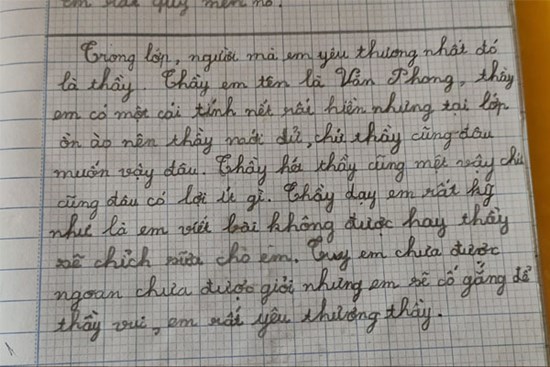 em rất quý mến nó.
Trong lớp, người mà em yêu thương nhất đó
là thầy. Thầy em tên là Văn Phong, thầy
em có một cái tính nết rất hiền nhưng tại lớp
ồn ào nên thầy mới dữ, chứ thầy cũng đâu
muốn vậy đâu. Thầy hét thầy cũng mệt vậy chứ
cũng đâu có lợi ít gì. Thầy dạy em rất kỹ
như là em viết bài không được hay thầy
sẽ chỉch sửa cho em. Tuy em chưa được
ngoan chưa được giỏi nhưng em sẽ cố gắng để
thầy vui, em rất yêu thương thầy.